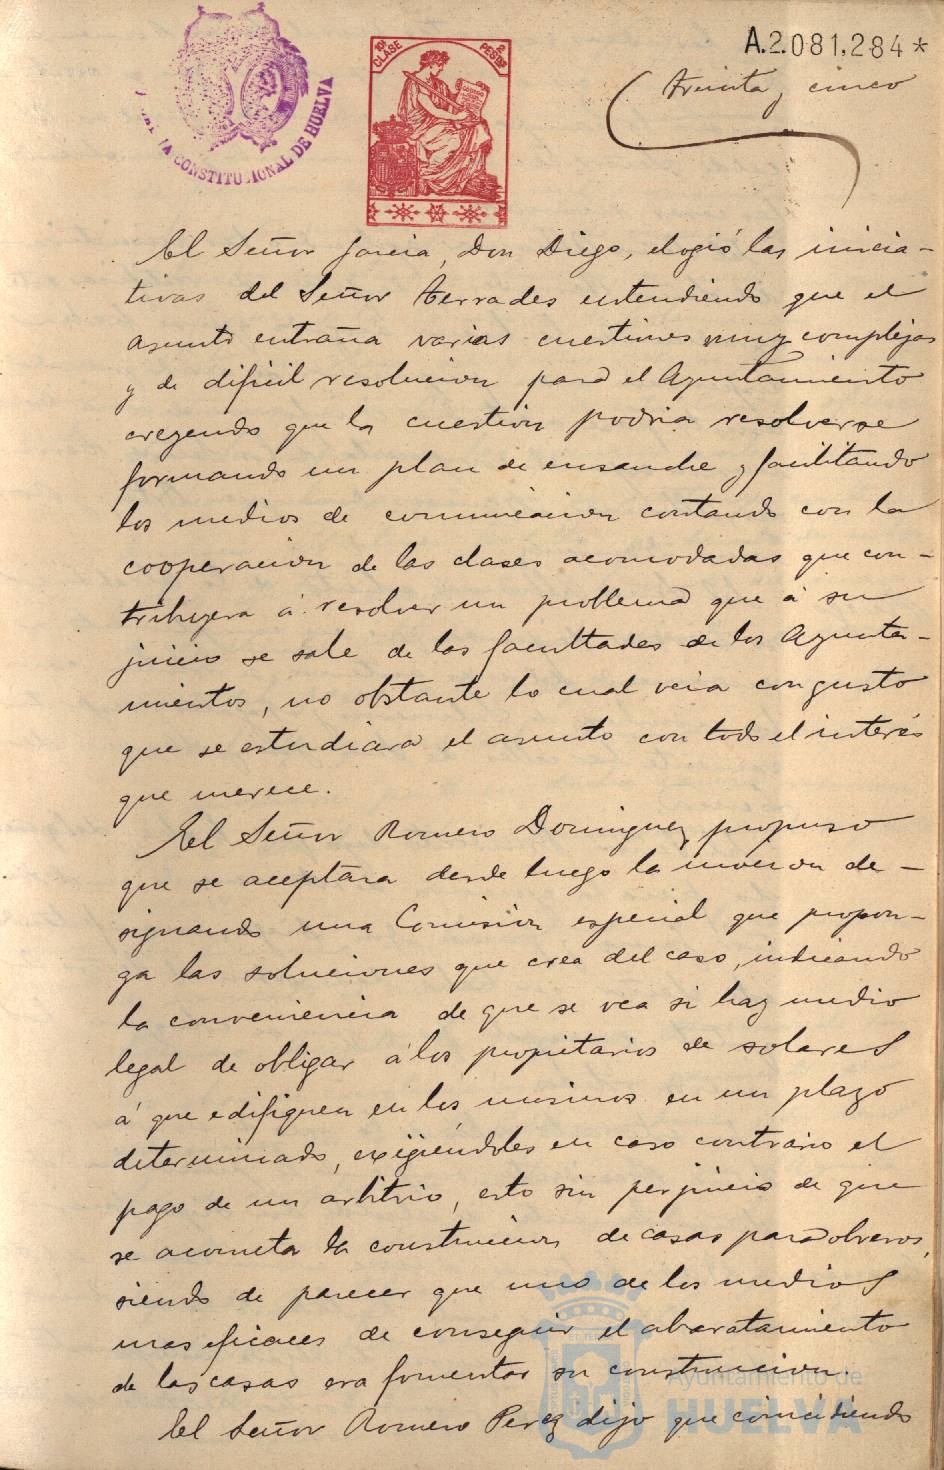 A.2.081.284*
treinta y cinco
10ª CLASE
2 PESETAS
CONSTITUCIONAL DE HUELVA
El Señor Garcia, Don Diego, elogió las inicia-
tivas del Señor Terrades entendiendo que el
asunto entraña varias cuestiones muy complejas
y de dificil resolucion para el Ayuntamiento
creyendo que la cuestion podria resolverse
formando un plan de ensanche y facilitando
los medios de comunicacion contando con la
cooperacion de las clases acomodadas que con-
tribuyera á resolver un problema que á su
juicio se sale de las facultades de los Ayunta-
mientos, no obstante lo cual veia con gusto
que se estudiara el asunto con todo el interés
que merece.
El Señor Romero Dominguez propuso
que se aceptara desde luego la mocion de-
signando una Comisión especial que propon-
ga las soluciones que crea del caso, indicando
la conveniencia de que se vea si hay medio
legal de obligar á los propietarios de solares
á que edifiquen en los mismos en un plazo
determinado, exigiéndoles en caso contrario el
pago de un arbitrio, esto sin perjuicio de que
se acometa la construccion de casas para obreros,
siendo de parecer que uno de los medios
mas eficaces de conseguir el abaratamiento
de las casas era fomentar su construccion.
El Señor Romero Perez dijo que coincidiendo
Ayuntamiento de
HUELVA